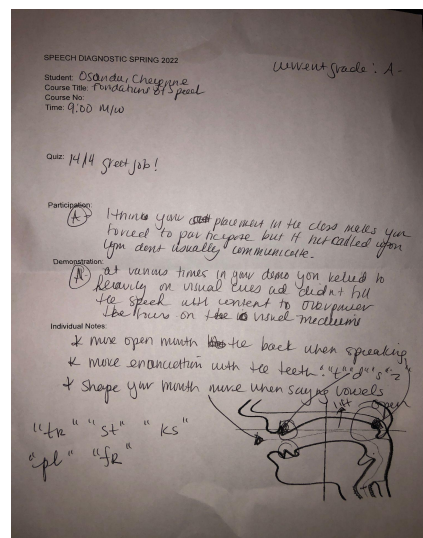 SPEECH DIAGNOSTIC SPRING 2022
current grade: A-
Student: Osandu, Cheyenne
Course Title: Foundations of Speech
Course No:
Time: 9:00 M/W
Quiz: 14/14 great job!
Participation:
A- I think your placement in the class makes you
forced to participate but if not called upon
you dont usually communicate.
Demonstration:
at various times in your demo you relied to
heavily on visual cues and didn't fill
the speech with content to overpower
the focus on the visual mediums
Individual Notes:
* more open mouth the back when speaking
* more enunciation with the teeth: "t" "d" "s" "z"
* Shape your mouth more when saying vowels
lift
open
"tr" "st" "ks"
"pl" "fr"